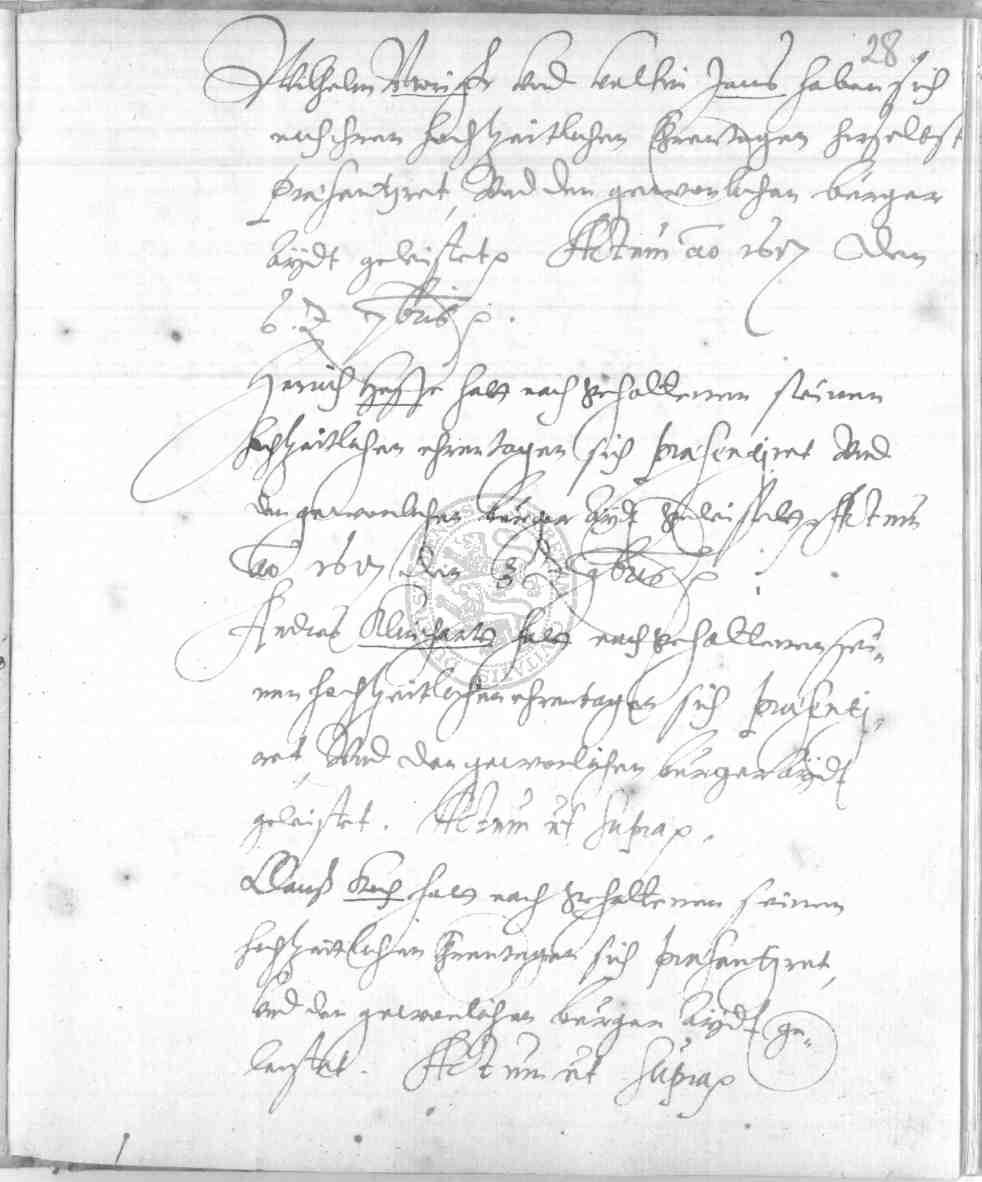 28
Wilhelm und Valtin Jans haben sich
nach ihren hochzeitlichen Ehrentagen hirselbst
præsentiret, Und den gewonlichen bürger
äydt geleistet Actum ao 1657 Den
6. 7bris.
Henrich Hesse hatt nach gehaltenen seinen
hochzeitlichen ehrentagen sich præsentiret Und
den gewonlichen bürger äydt geleistet Actum
ao 1657 den 9bris
Andres hatt nach gehaltenen sei-
nen hochzeitlichen ehrentagen sich præsenti-
ret, Und den gewonlichen bürger äydt
geleistet. Actum ut supra.
Clauß Koch hatt nach gehaltenen seinen
hochzeitlichen Ehrentagen sich præsentiret,
Und den gewonlichen bürger äydt ge-
leistet. Actum ut supra